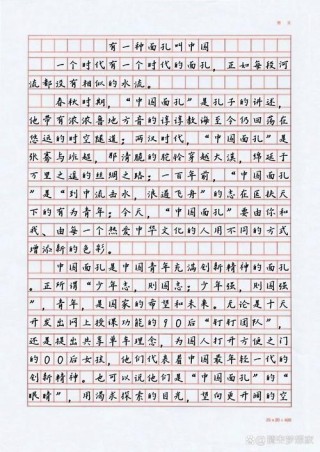 有一种面孔叫中国
一个时代有一个时代的面孔，正如每段河
流都没有相似的水流。
春秋时期，“中国面孔”是孔子的讲述，
他带有浓浓鲁地方音的谆谆教诲至今仍回荡在
悠远的时空隧道；两汉时代，“中国面孔”是
张骞与班超，那清脆的驼铃穿越大漠，绵延于
万里之遥的丝绸之路；一百年前，“中国面孔
”是“到中流击水，浪遏飞舟”的志在匡扶天
下的有为青年；今天，“中国面孔”要由你和
我、由每一个热爱中华文化的人用不同的方式
增添新的色彩。
中国面孔是中国青年充满创新精神的面孔
。正所谓“少年志，则国志；少年强，则国强
”，青年，是国家的希望和未来。无论是十天
开发出网上授课功能的90后“钉钉团队”，
还是提出共享单车理念，为国人打开方便之门
的00后女孩，他们代表着中国最年轻一代的
创新精神。也可以说他们是“中国面孔”的“
眼睛”，用渴求探索的目光，望向更开阔的空
20×20=400